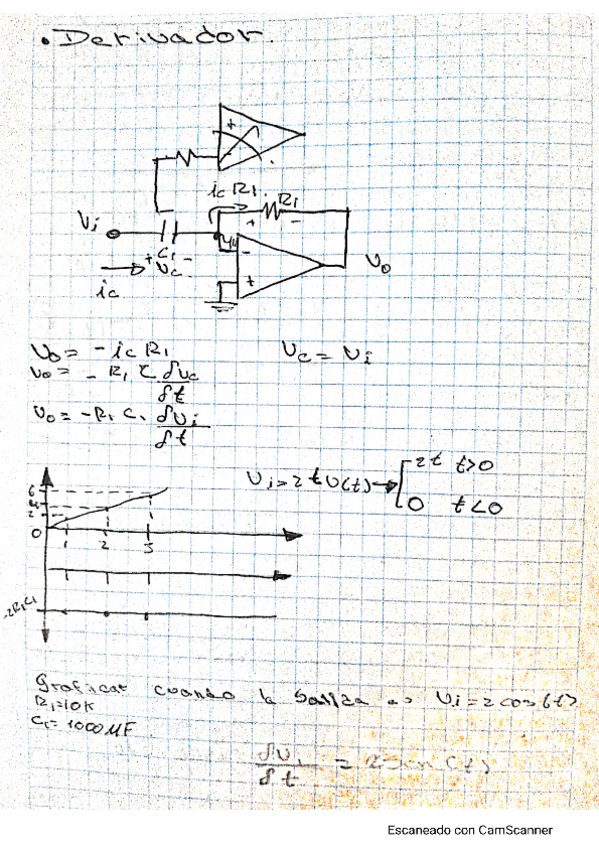 • Derivador.
ic R1
R1
Vi
+ C1 -
Vc
ic
Vo
Vo = -ic R1
Vc = Vi
Vo = - R1 C δVc/δt
Vo = -R1 C1 δVi/δt
Vi = 2 t U(t) → { 2t t>0
0 t<0
6
4
2
0
1 2 3
-2R1C1
Graficar cuando la salida es Vi = 2 cos(t)
R1=10K
C1= 1000MF
δVi/δt =
Escaneado con CamScanner